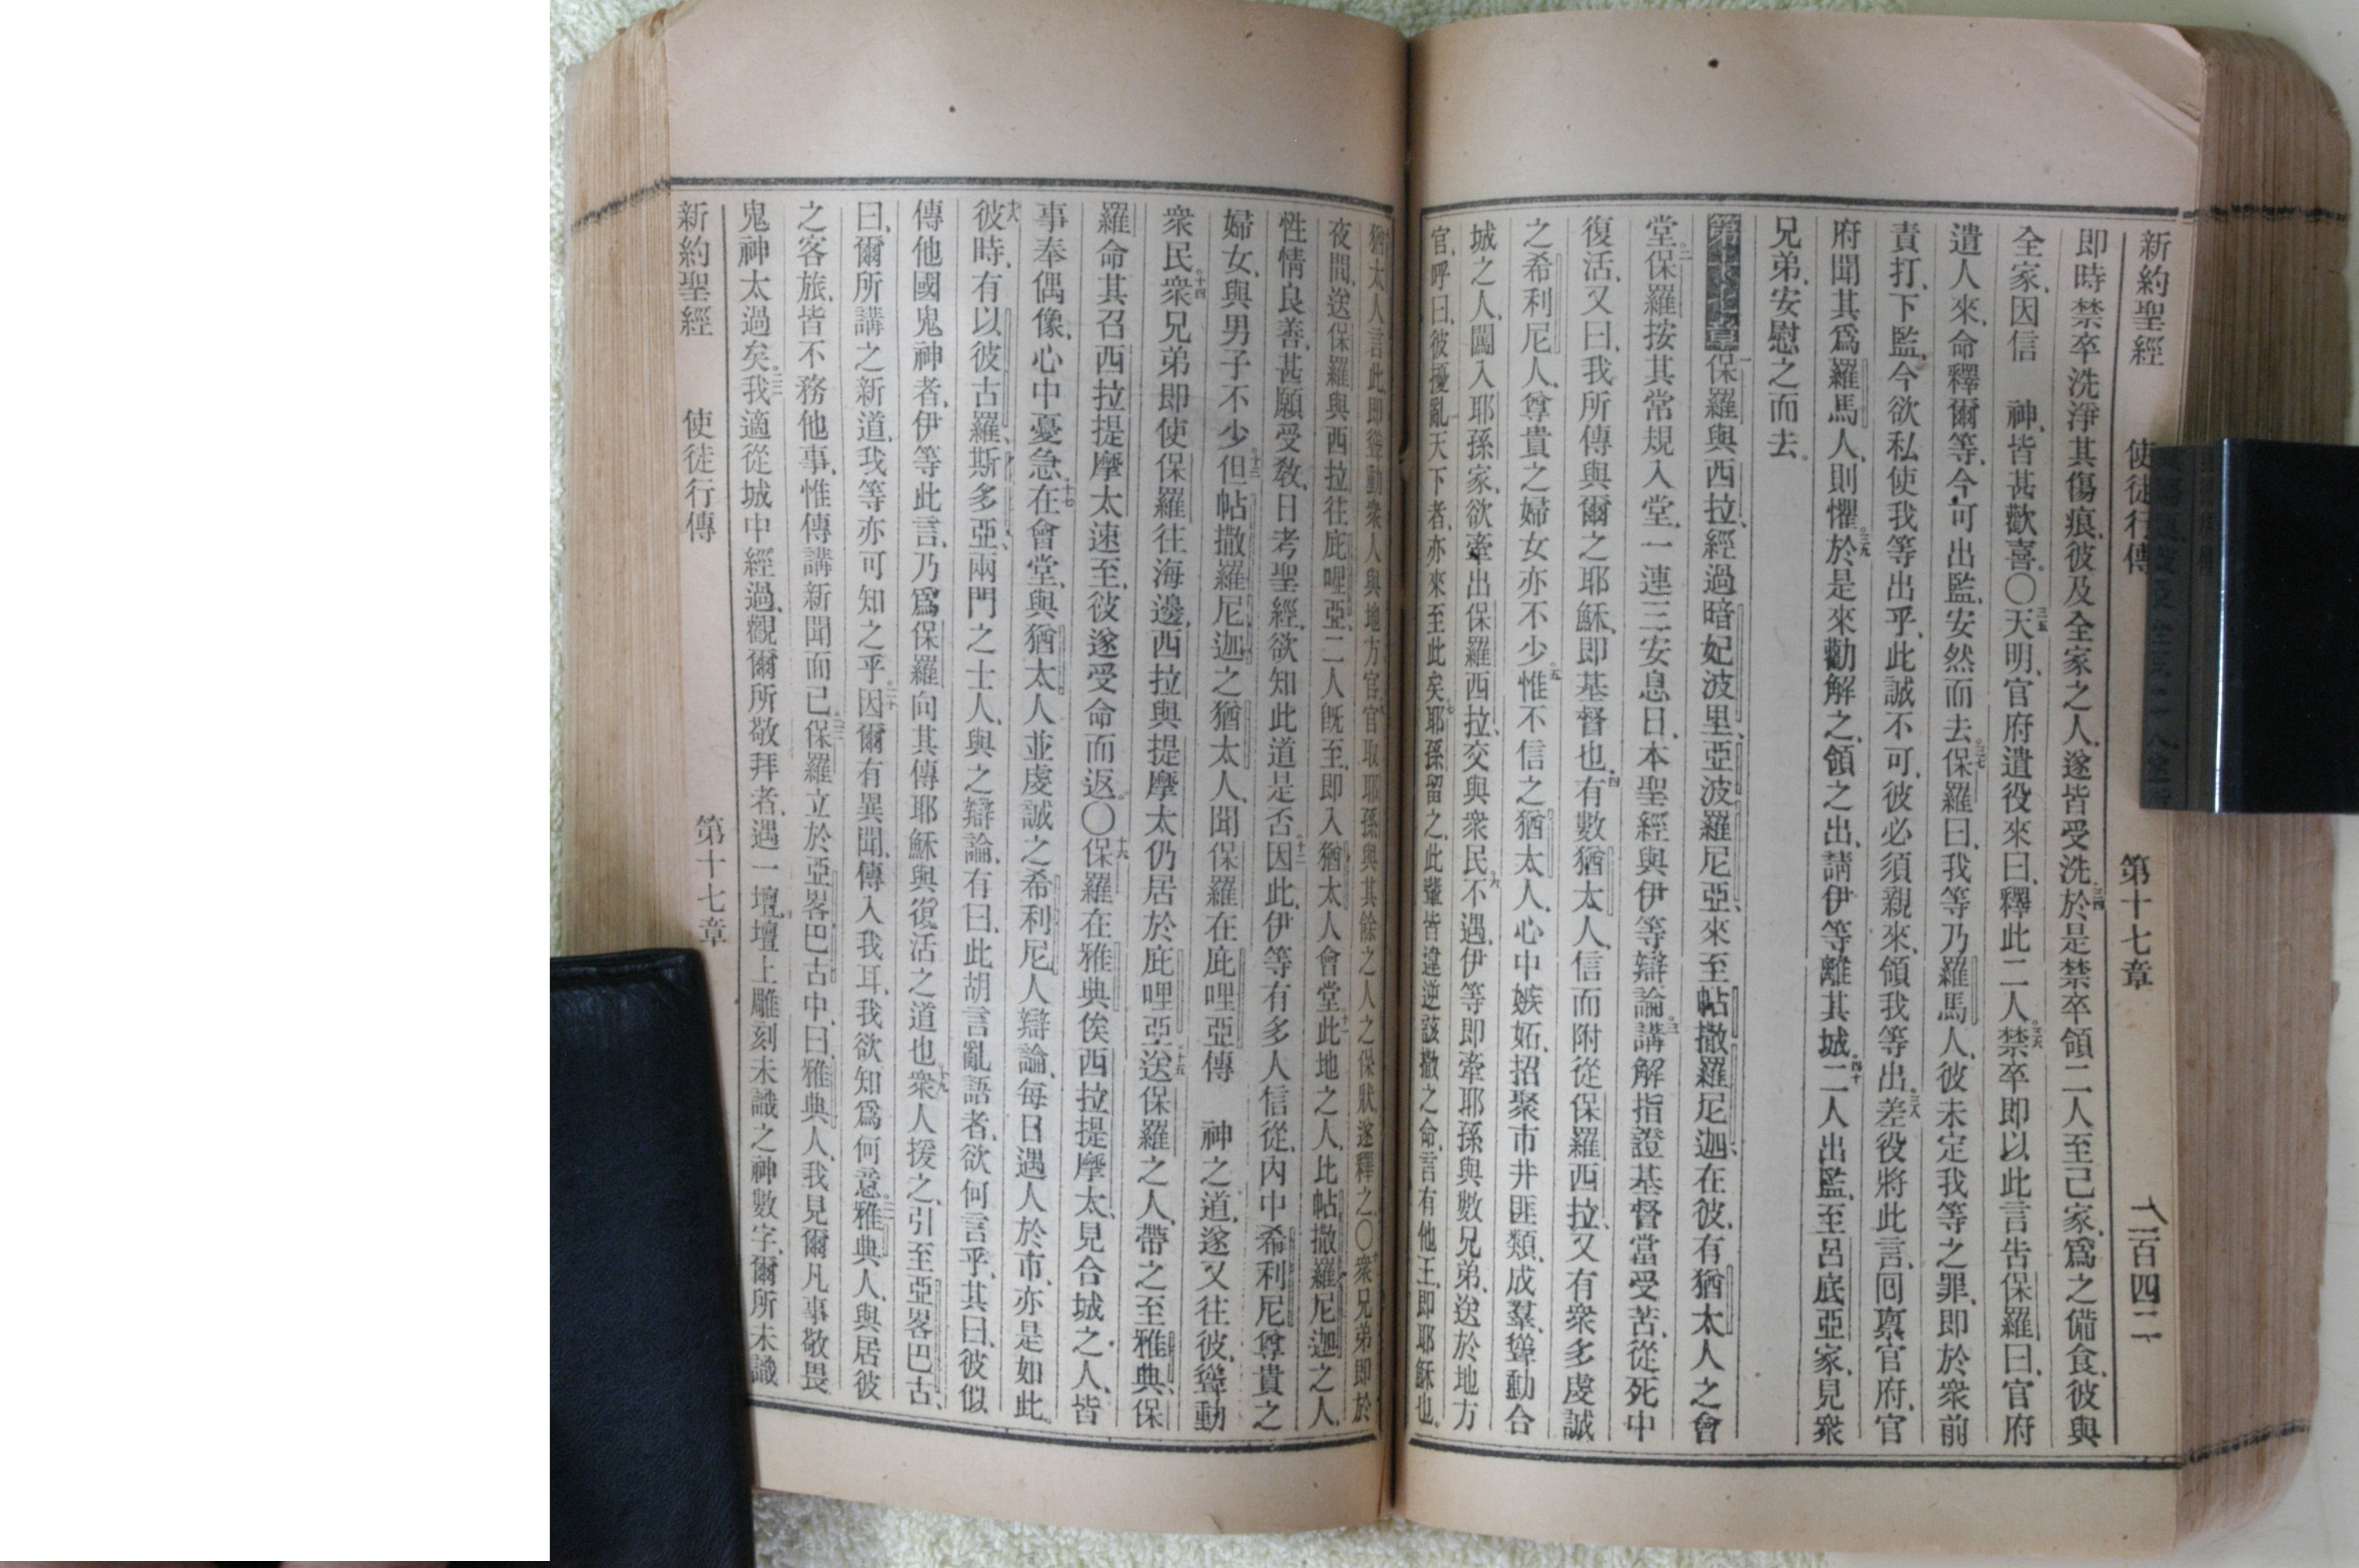 新約聖經 使徒行傳 第十七章 二百四二
即時禁卒洗淨其傷痕、彼及全家之人、遂皆受洗。三四於是禁卒領二人至己家、爲之備食、彼與
全家、因信 神、皆甚歡喜。〇三五天明、官府遣役來曰、釋此二人。三六禁卒即以此言告保羅曰、官府
遣人來、命釋爾等、今可出監、安然而去。三七保羅曰、我等乃羅馬人、彼未定我等之罪、即於衆前
責打、下監、今欲私使我等出乎、此誠不可、彼必須親來、領我等出。三八差役將此言、回禀官府、官
府聞其爲羅馬人、則懼。三九於是來勸解之、領之出、請伊等離其城。四十二人出監、至呂底亞家、見衆
兄弟、安慰之而去。
第十七章 一保羅與西拉、經過暗妃波里、亞波羅尼亞、來至帖撒羅尼迦、在彼、有猶太人之會
堂。二保羅按其常規入堂、一連三安息日、本聖經與伊等辯論。三講解指證基督當受苦、從死中
復活、又曰、我所傳與爾之耶穌、即基督也。四有數猶太人、信而附從保羅西拉、又有衆多虔誠
之希利尼人、尊貴之婦女亦不少。五惟不信之猶太人、心中嫉妬、招聚市井匪類、成羣、聳動合
城之人、闖入耶孫家、欲牽出保羅西拉、交與衆民。六不遇、伊等即牽耶孫與數兄弟、送於地方
官、呼曰、彼擾亂天下者、亦來至此矣。七耶孫留之、此輩皆違逆該撒之命、言有他王、即耶穌也。
猶太人言此、即聳動衆人與地方官。官取耶孫與其餘之人之保狀、遂釋之。〇衆兄弟即於
夜間、送保羅與西拉往庇哩亞、二人既至、即入猶太人會堂。十一此地之人、比帖撒羅尼迦之人、
性情良善、甚願受敎、日考聖經、欲知此道是否。十二因此、伊等有多人信從、內中希利尼尊貴之
婦女、與男子不少。十三但帖撒羅尼迦之猶太人、聞保羅在庇哩亞傳 神之道、遂又往彼、聳動
衆民。十四衆兄弟即使保羅往海邊、西拉與提摩太仍居於庇哩亞。十五送保羅之人、帶之至雅典、保
羅命其召西拉提摩太速至、彼遂受命而返。〇十六保羅在雅典俟西拉提摩太、見合城之人、皆
事奉偶像、心中憂急。十七在會堂、與猶太人並虔誠之希利尼人辯論、每日遇人於市、亦是如此。
十八彼時、有以彼古羅、斯多亞、兩門之士人、與之辯論、有曰、此胡言亂語者、欲何言乎、其曰、彼似
傳他國鬼神者、伊等此言、乃爲保羅向其傳耶穌與復活之道也。十九衆人援之、引至亞畧巴古、
曰、爾所講之新道、我等亦可知之乎。二十因爾有異聞、傳入我耳、我欲知爲何意。二一雅典人、與居彼
之客旅、皆不務他事、惟傳講新聞而已。二二保羅立於亞畧巴古中、曰、雅典人、我見爾凡事敬畏
鬼神太過矣。二三我適從城中經過、觀爾所敬拜者、遇一壇、壇上雕刻未識之神數字、爾所未識
新約聖經 使徒行傳 第十七章